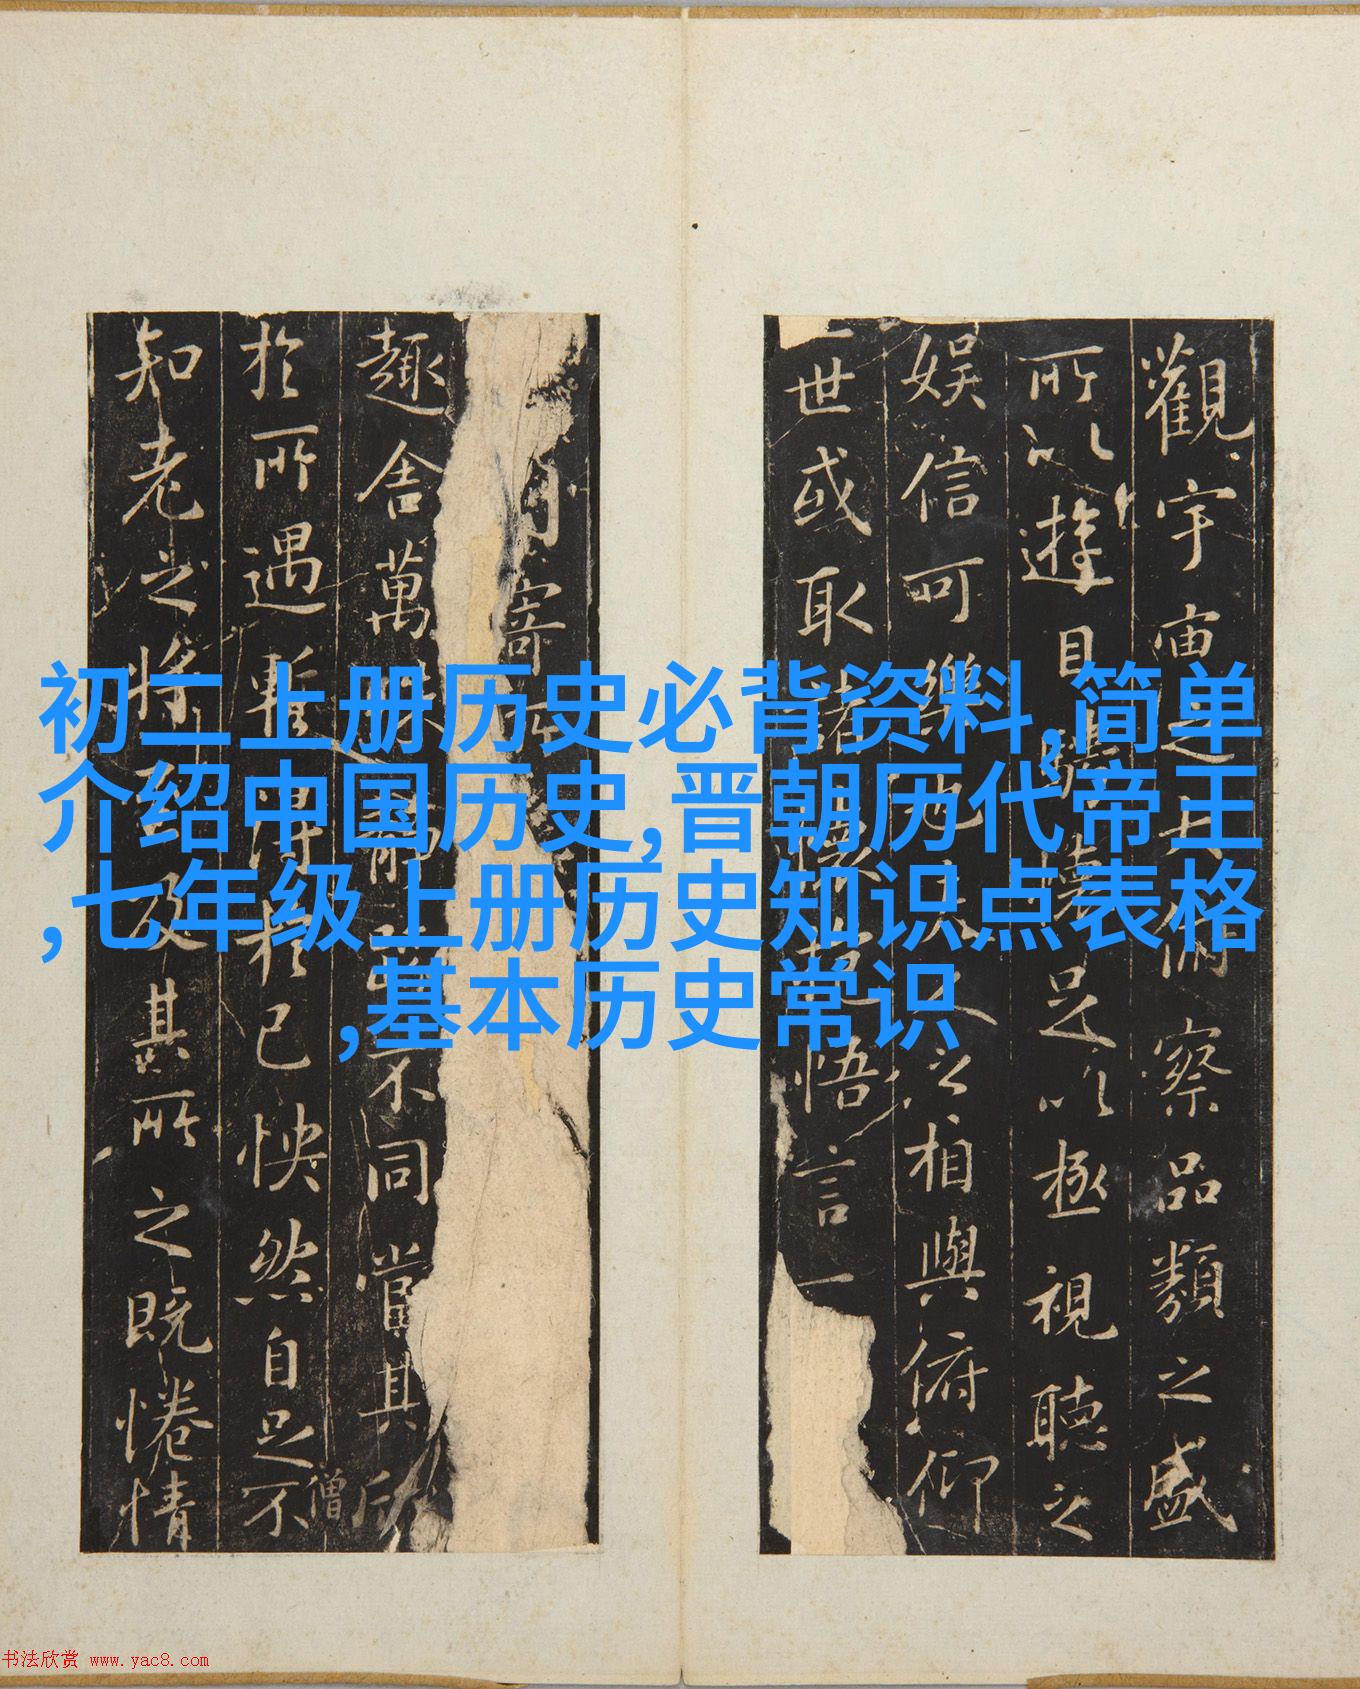 初二上册历史必背资料,简单
介绍中国历史,晋朝历代帝王
,七年级上册历史知识点表格
,基本历史常识
觀宇宙之大俯察品類之盛
所以遊目騁懷足以極視聽之
娛信可樂也夫人之相與俯仰
一世或取諸懷抱悟言一
寄所
趣舍萬殊靜躁不同當其欣
僧
於所遇暫得於己怏然自足不
知老之將至及其所之既惓情
书法欣赏 www.yac8.com